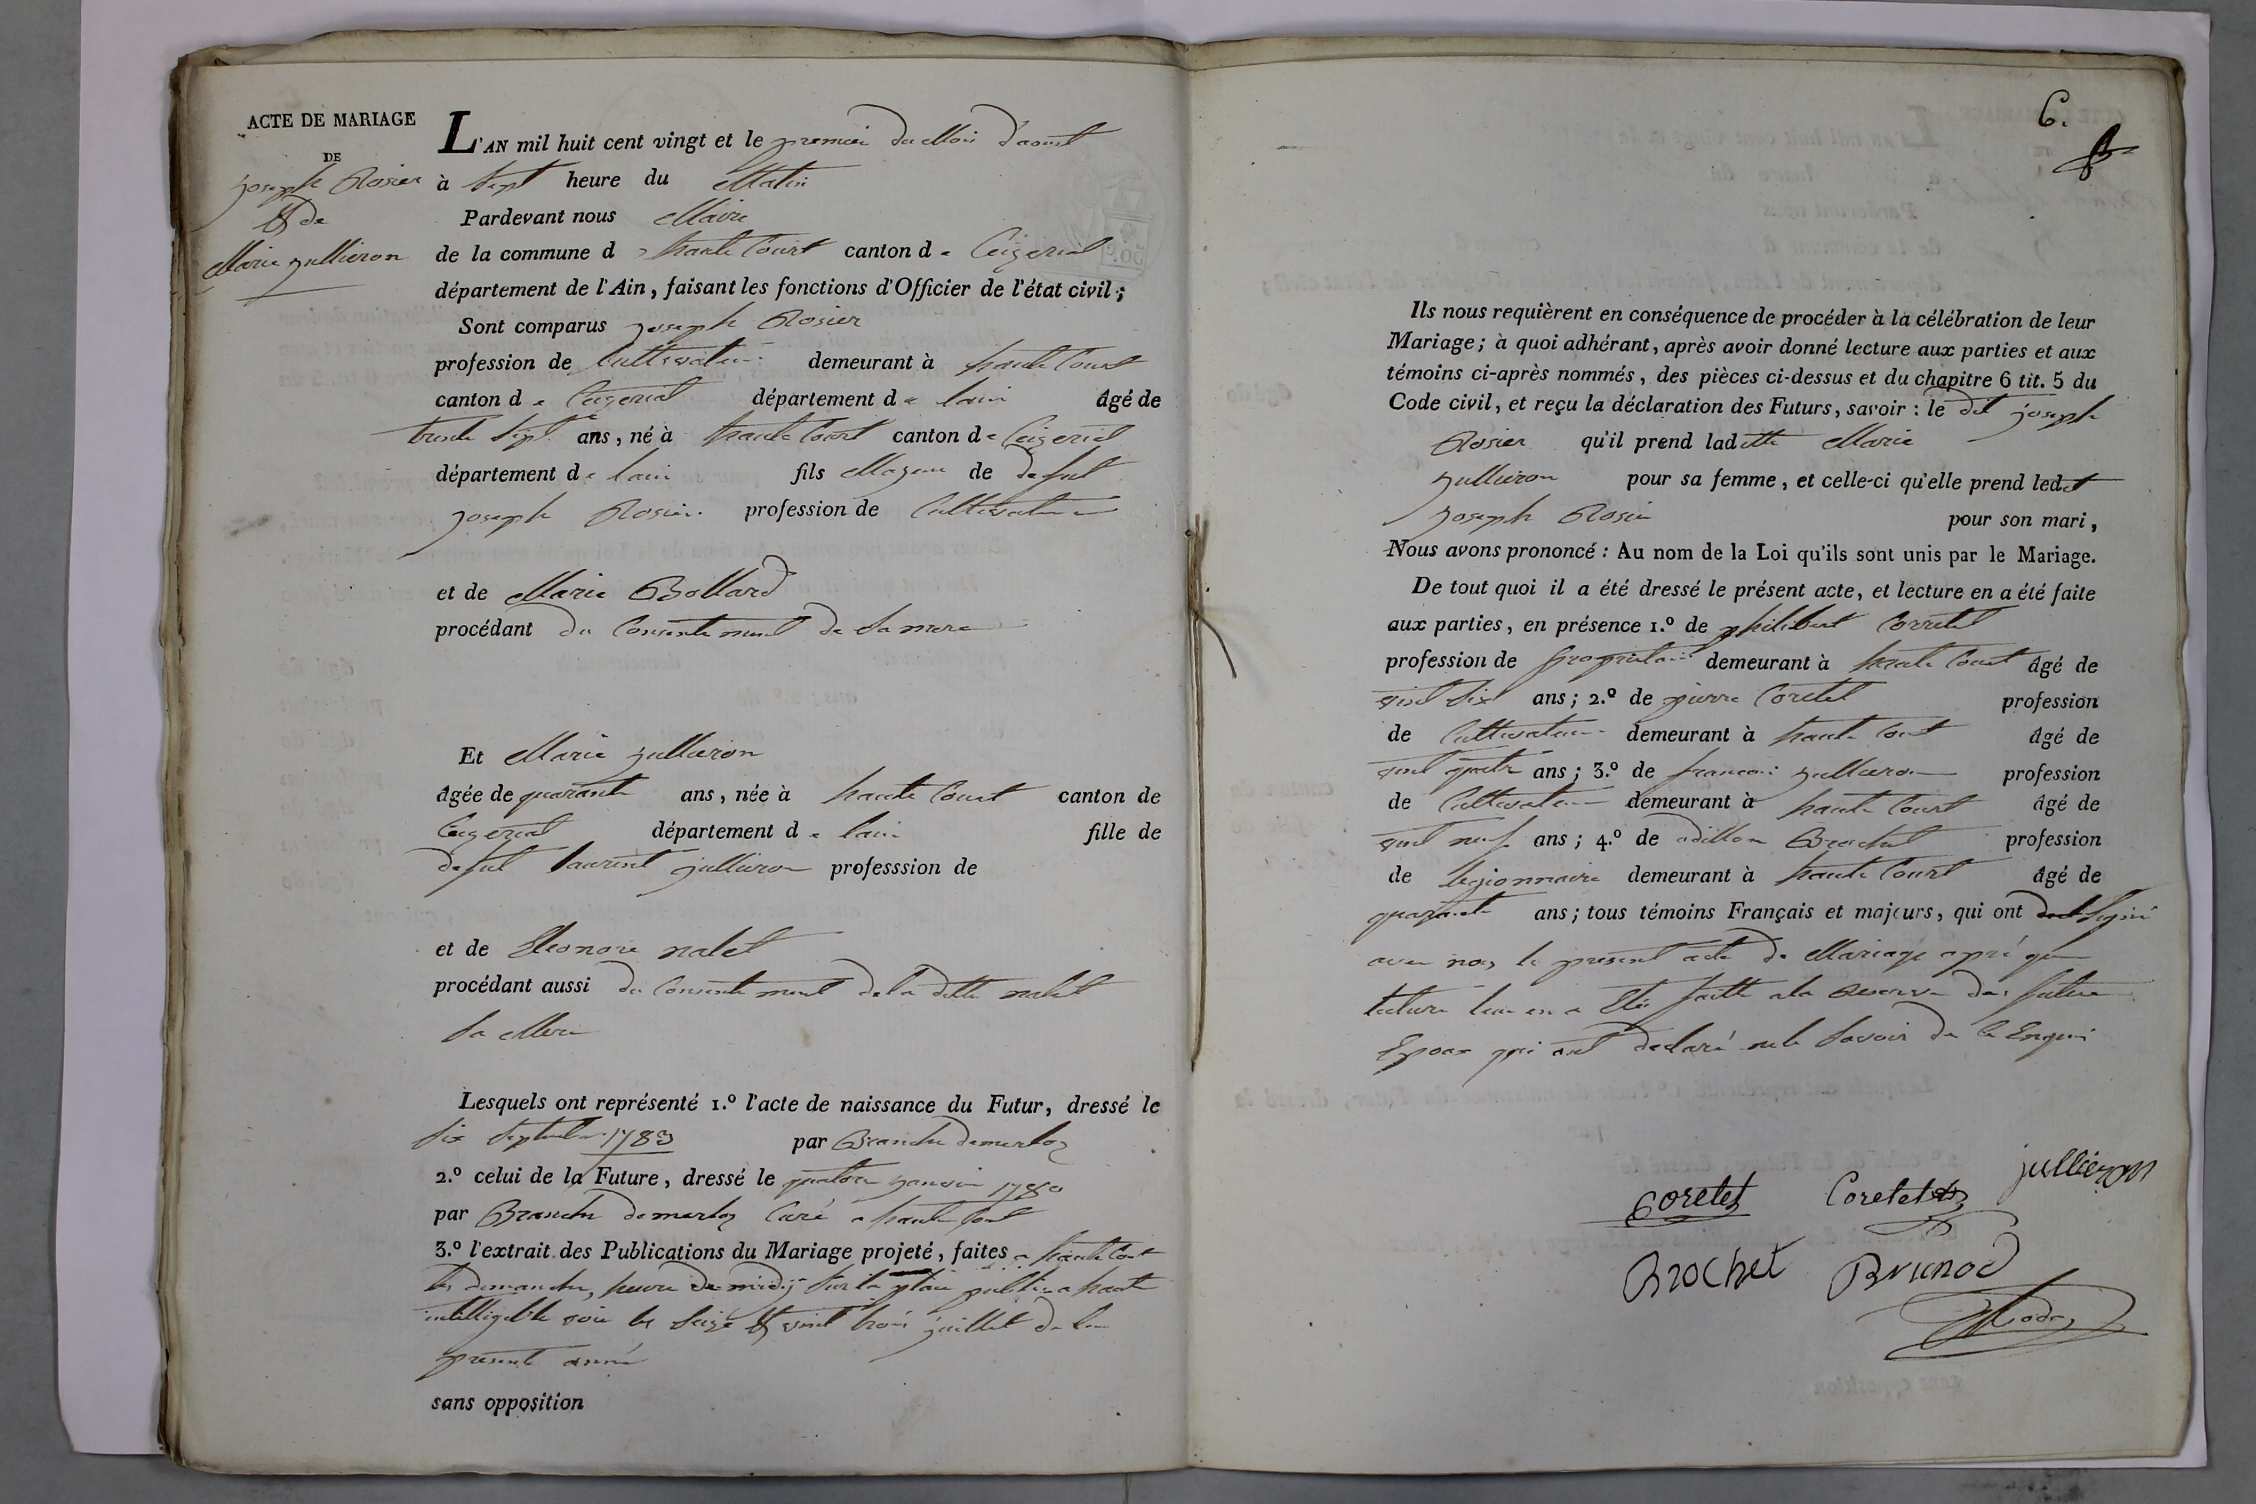 ACTE DE MARIAGE
DE
joseph Rosier
& de
Marie jullieron
L'AN mil huit cent vingt et le premier du Mois d'aout
à sept heure du Matin
Pardevant nous Maire
de la commune d haute Court canton de Ceizeriat
département de l'Ain, faisant les fonctions d'Officier de l'état civil;
Sont comparus joseph Rosier
profession de Cultivateur demeurant à haute Court
canton de Ceizeriat département de lain âgé de
trente sept ans, né à haute Court canton de Ceizeriat
département de lain fils Majeur de defunt
joseph Rosier profession de Cultivateur
et de Marie Bollard
procédant du Consentement de sa mere
Et Marie jullieron
âgée de quarante ans, née à haute Court canton de
Ceizeriat département de lain fille de
defunt laurent jullieron professsion de
et de Eleonore nalet
procédant aussi du Consentement de la ditte nalet
sa Mere
Lesquels ont représenté 1.º l'acte de naissance du Futur, dressé le
six septembre 1783 par
2.º celui de la Future, dressé le janvier 1780
par Curé a haute Court
3.º l'extrait des Publications du Mariage projeté, faites a haute Court
les dimanches, heure de midy sur la place publique a haute
intelligible voix les seize & vint trois juillet de la
presente année
sans opposition
6.
Ils nous requièrent en conséquence de procéder à la célébration de leur
Mariage; à quoi adhérant, après avoir donné lecture aux parties et aux
témoins ci-après nommés, des pièces ci-dessus et du chapitre 6 tit. 5 du
Code civil, et reçu la déclaration des Futurs, savoir: le dit joseph
Rosier qu'il prend laditte Marie
jullieron pour sa femme, et celle-ci qu'elle prend ledit
joseph Rosier pour son mari,
Nous avons prononcé: Au nom de la Loi qu'ils sont unis par le Mariage.
De tout quoi il a été dressé le présent acte, et lecture en a été faite
aux parties, en présence 1.º de philibert Corretel
profession de proprietaire demeurant à haute Court âgé de
vint six ans; 2.º de pierre Coretel profession
de Cultivateur demeurant à haute Court âgé de
vint quatre ans; 3.º de francois jullieron profession
de Cultivateur demeurant à haute Court âgé de
vint neuf ans; 4.º de Brochet profession
de legionnaire demeurant à haute Court âgé de
quarante ans; tous témoins Français et majeurs, qui ont signé
avec nous le present acte de Mariage apré que
lecture leur en a Eté faitte a la Reserve des future
Epoux qui ont declaré ne le savoir de ce Enquis
Coretet Coretet jullieron
Brochet Brunod